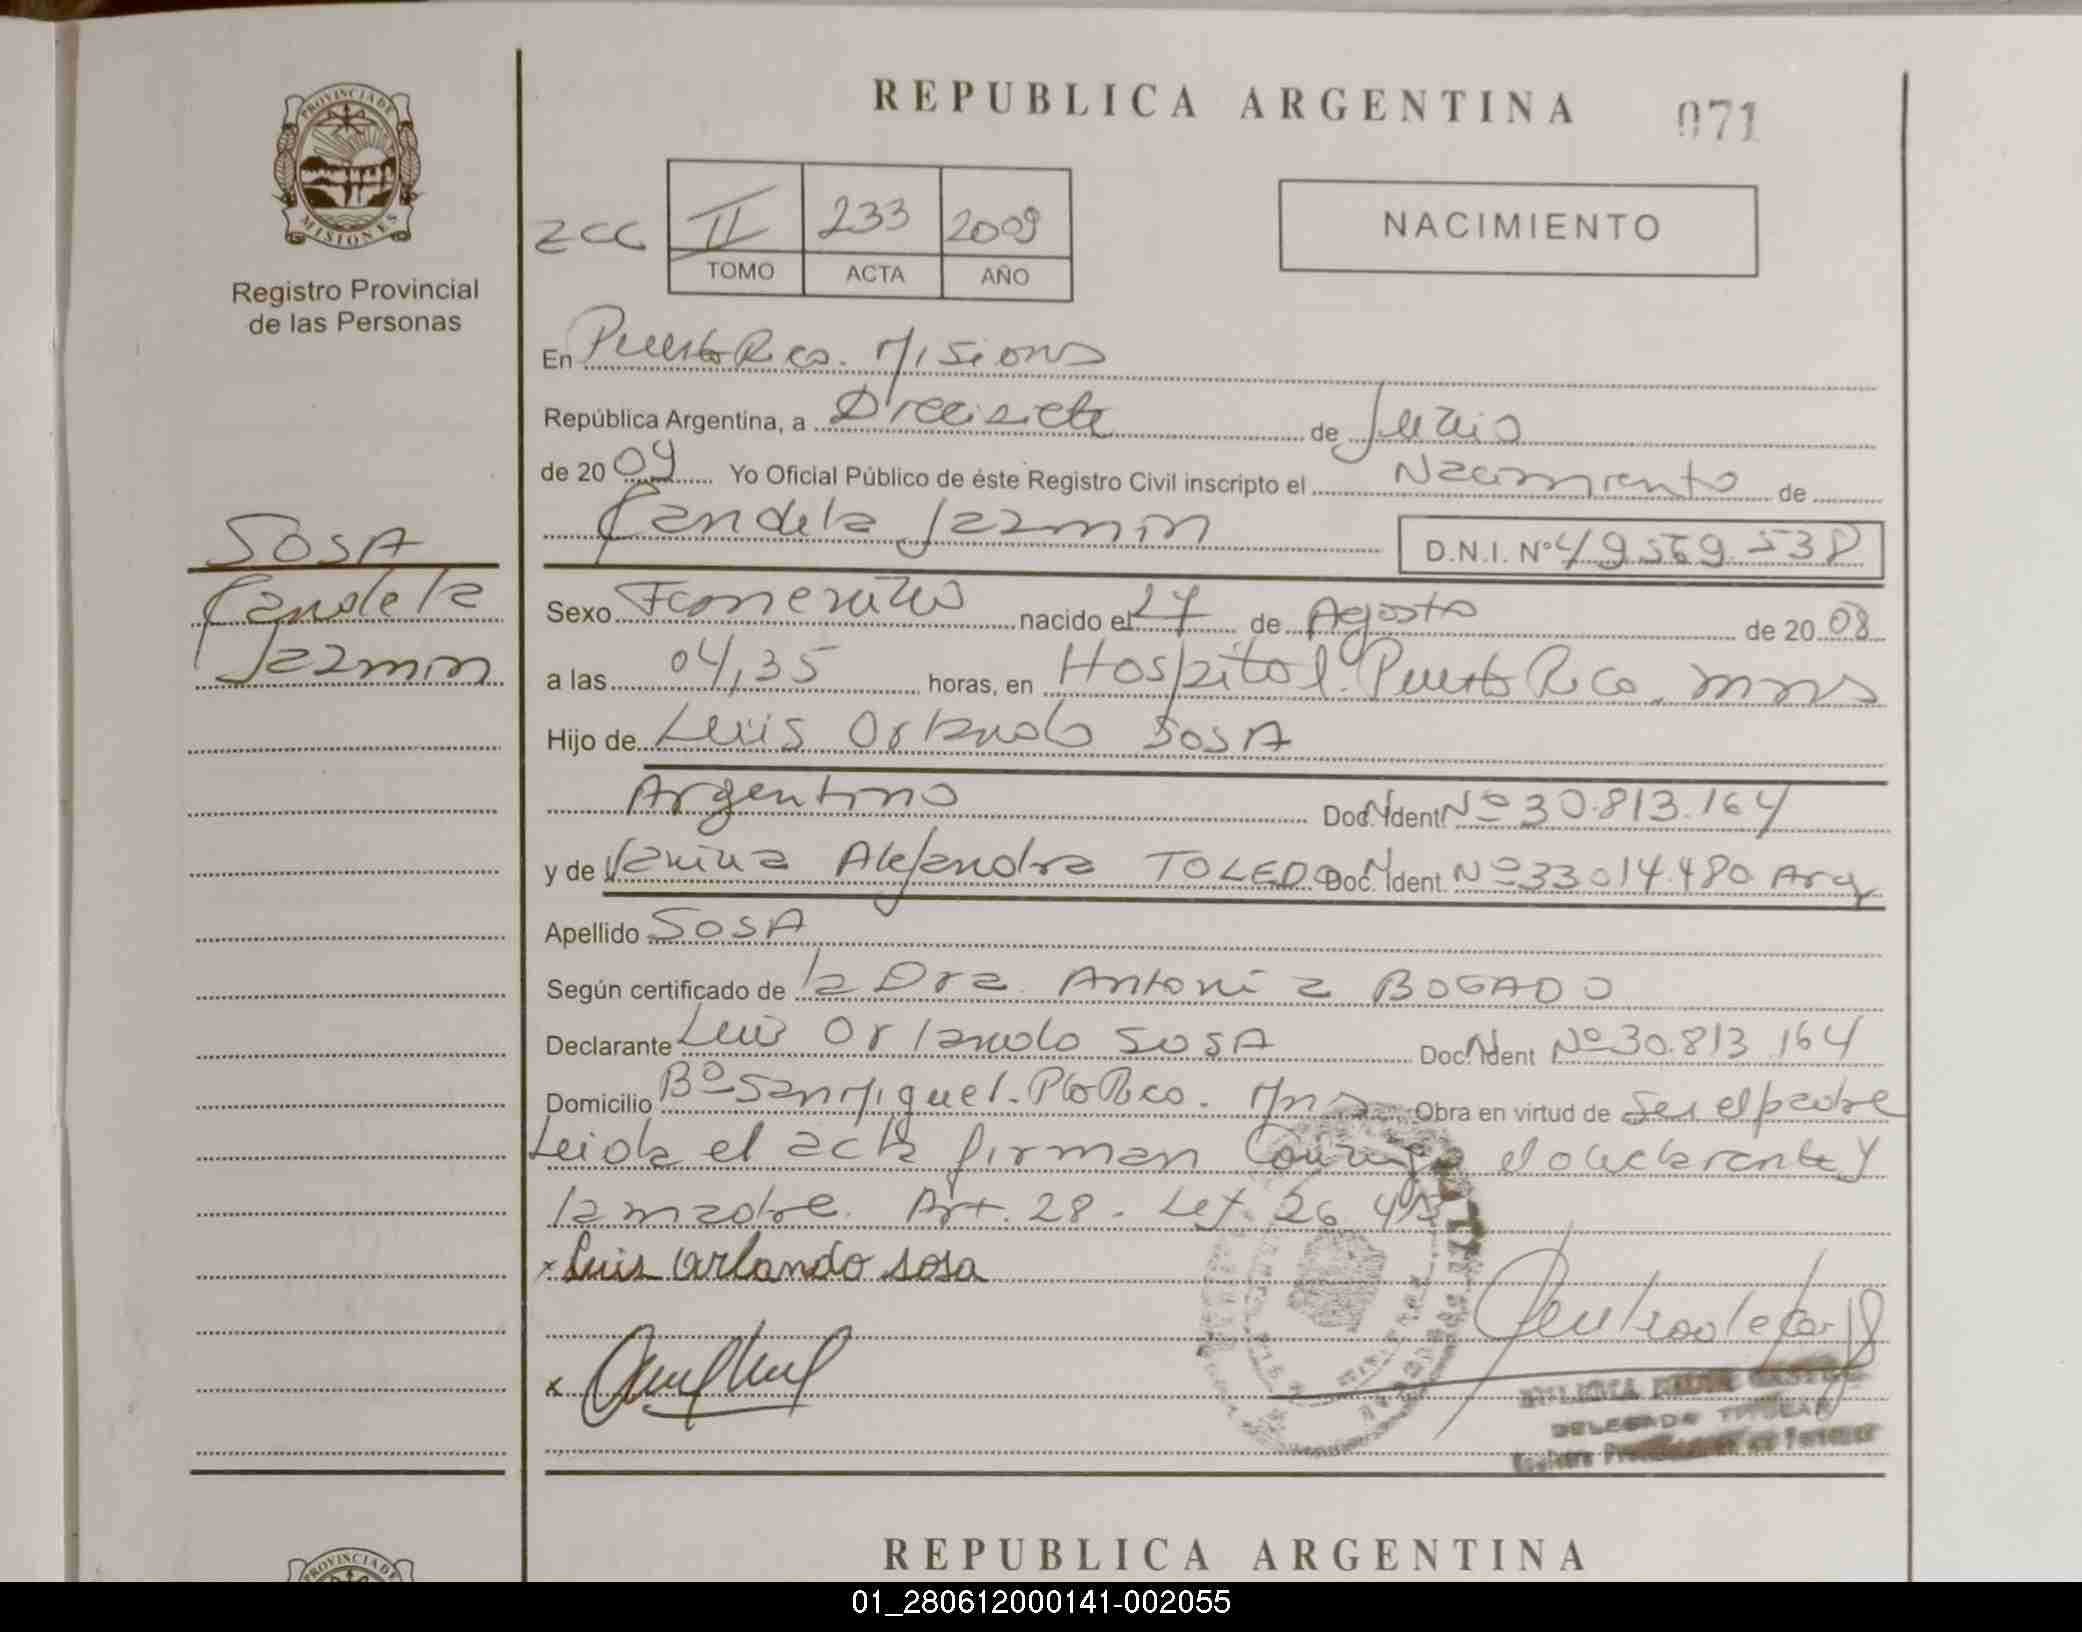 REPUBLICA ARGENTINA
071
PROVINCIA DE MISIONES
Registro Provincial
de las Personas
II 233 2009
TOMO ACTA AÑO
NACIMIENTO
En Puerto Rico. Misiones
República Argentina, a Diecisiete de Junio
de 2009 Yo Oficial Público de éste Registro Civil inscripto el Nacimiento de
Candela Jazmin D.N.I. Nº 49.569.538
SOSA
Candela
Jazmin
Sexo Femenino nacido el 27 de Agosto de 2008
a las 04,35 horas, en Hospital. Puerto Rico. Mnes
Hijo de Luis Orlando SOSA
Argentino Doc. Ident Nº 30.813.164
y de Vanina Alejandra TOLEDO Doc. Ident. Nº 33.014.480 Arg
Apellido SOSA
Según certificado de la Dra. Antonia BOGADO
Declarante Luis Orlando SOSA Doc. Ident Nº 30.813.164
Domicilio Bº San Miguel. Pto Rico. Mns Obra en virtud de ser el padre
Leida el acta firman Conmigo el declarante y
la madre. Art. 28. Ley 26.413
x Luis orlando sosa
x
DELEGADA TITULAR
REPUBLICA ARGENTINA
PROVINCIA DE
01_280612000141-002055